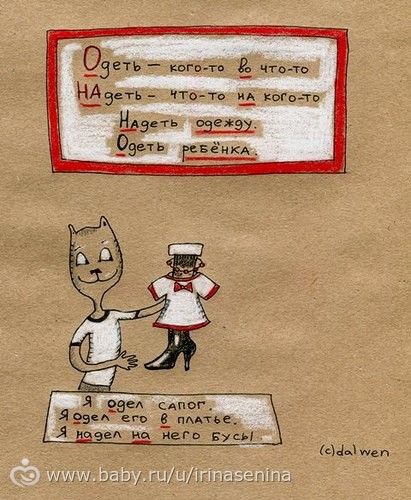 Одеть – кого-то во что-то
НАдеть – что-то на кого-то
Надеть одежду.
Одеть ребёнка.
Я одел сапог.
Я одел его в платье.
Я надел на него бусы
(c)dalwen
www.baby.ru/u/irinasenina